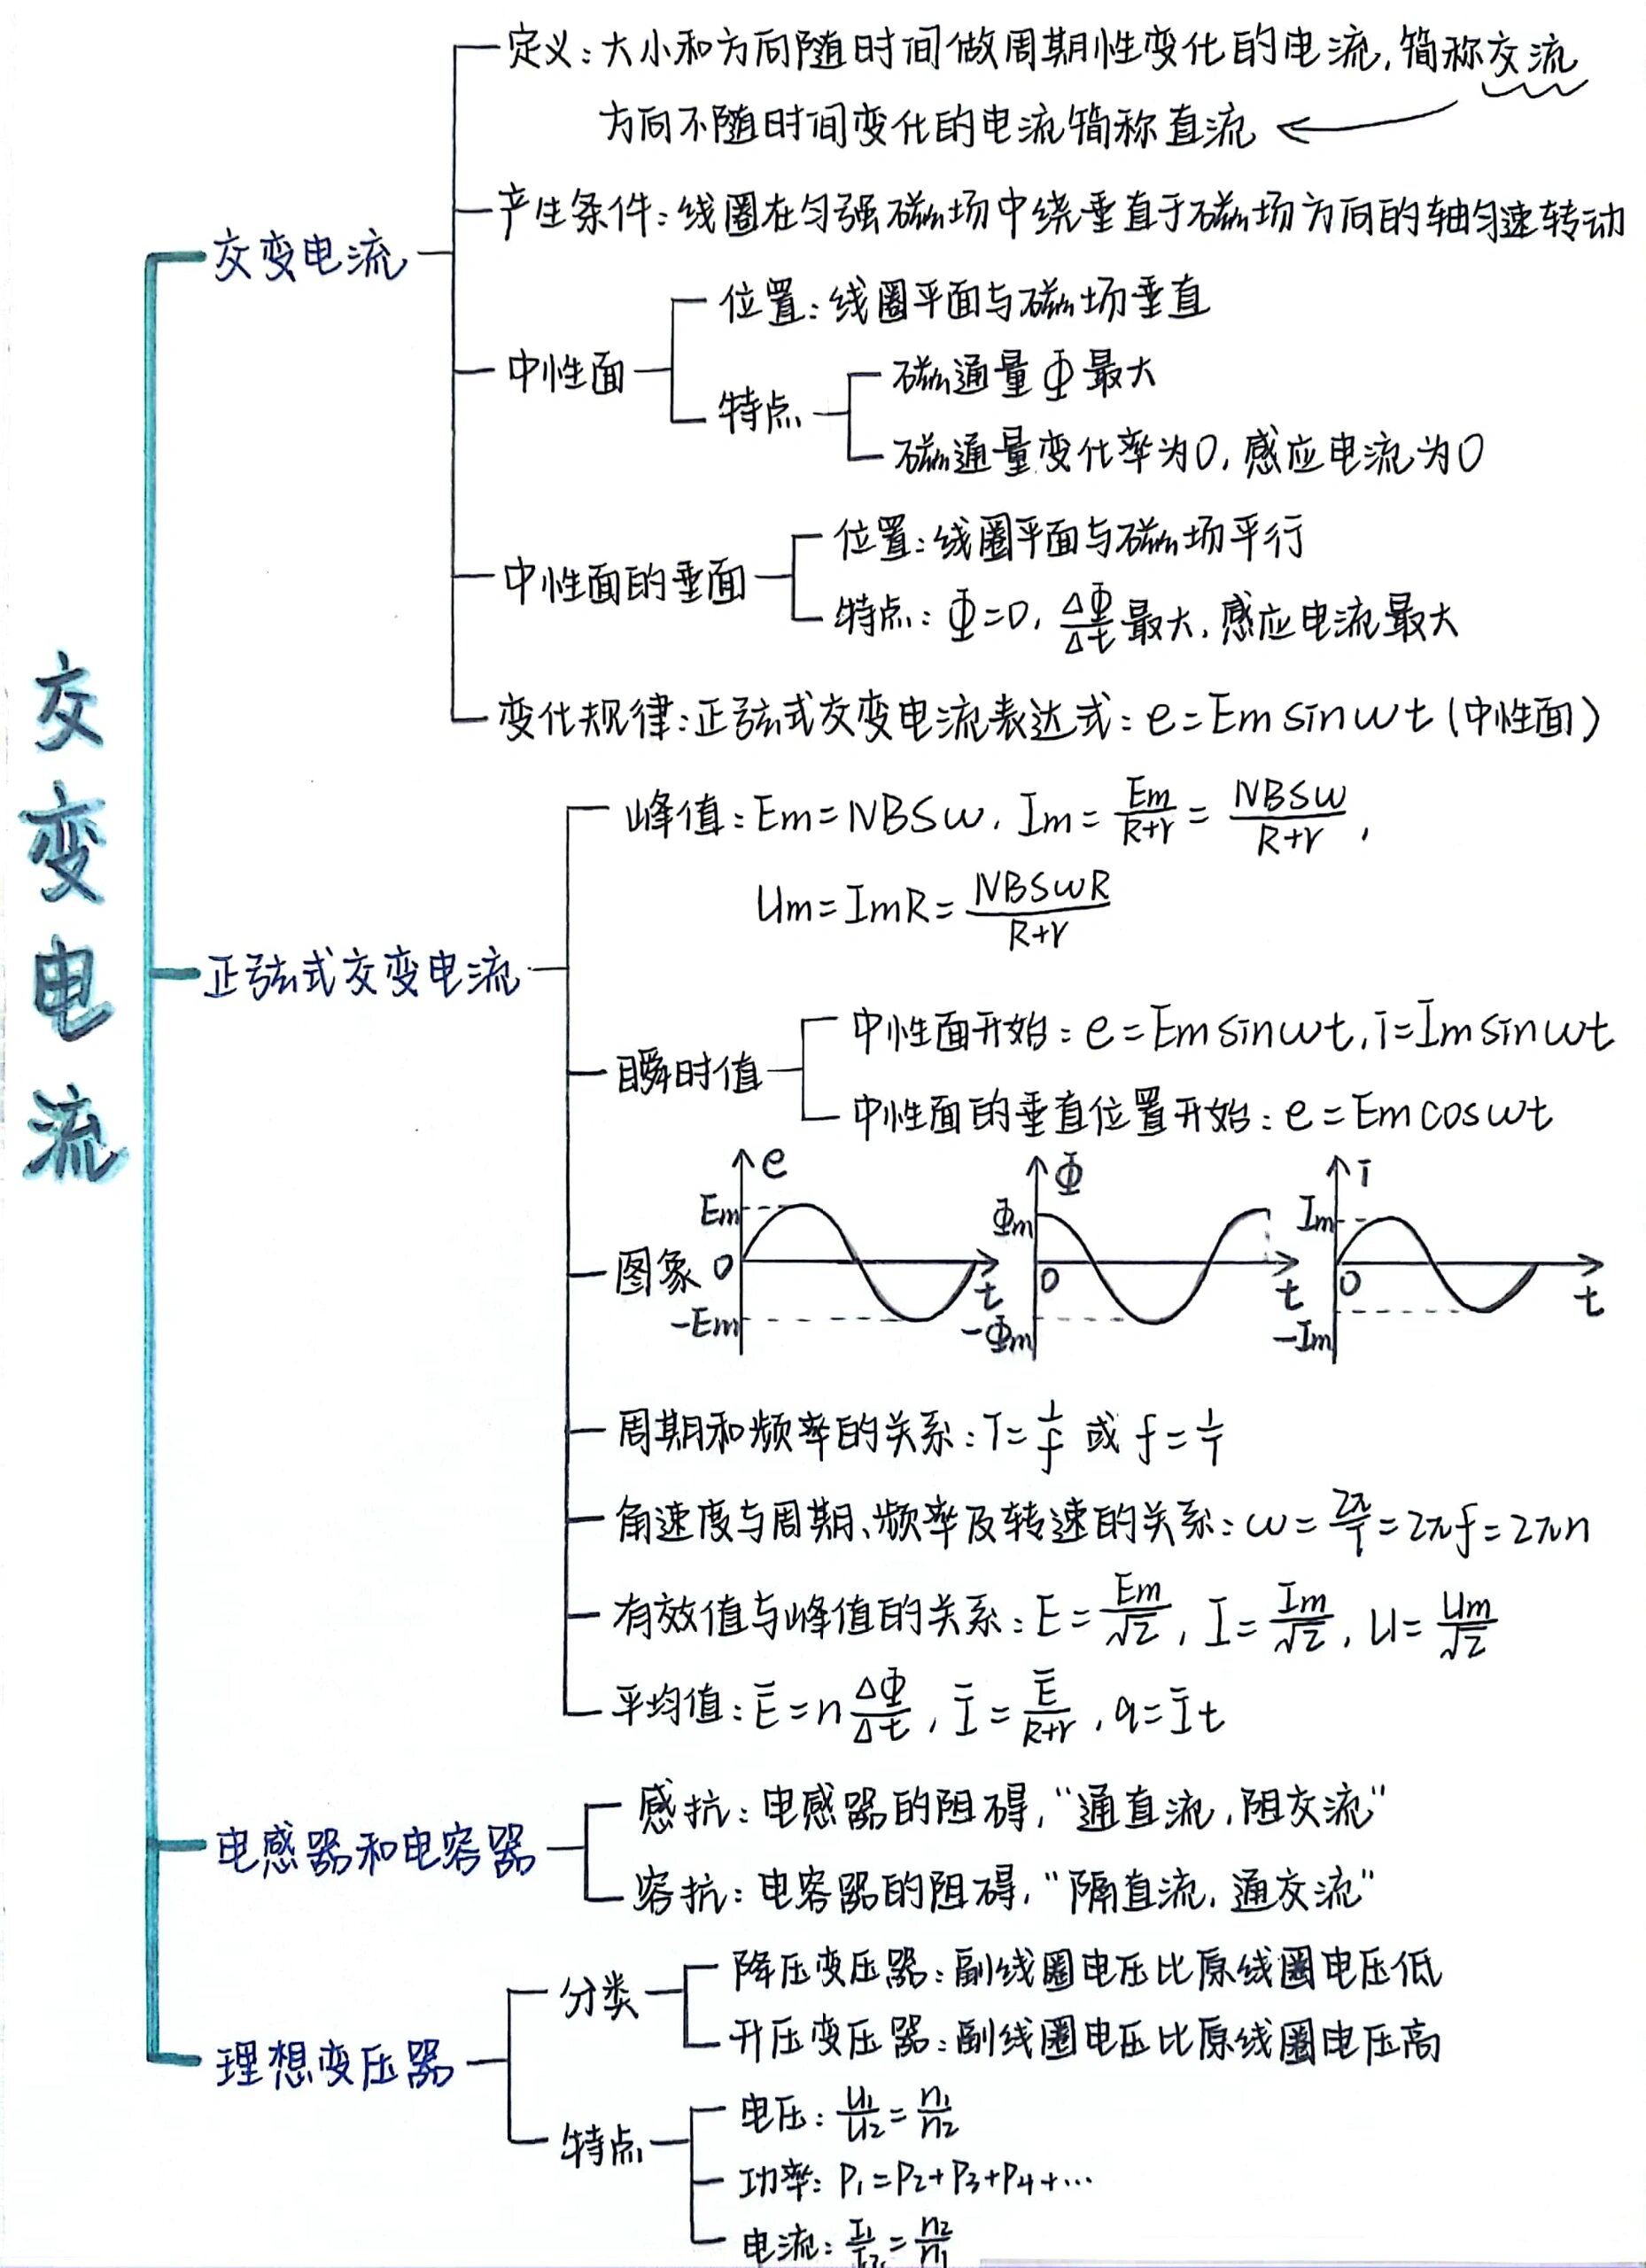 交变电流
交变电流
定义:大小和方向随时间做周期性变化的电流,简称交流
方向不随时间变化的电流简称直流
产生条件:线圈在匀强磁场中绕垂直于磁场方向的轴匀速转动
中性面
位置:线圈平面与磁场垂直
特点
磁通量Φ最大
磁通量变化率为0,感应电流为0
中性面的垂面
位置:线圈平面与磁场平行
特点:Φ=0,ΔΦ/Δt最大,感应电流最大
变化规律:正弦式交变电流表达式:e=Em sinωt(中性面)
正弦式交变电流
峰值:Em=NBSω,Im=Em/(R+r)=NBSω/(R+r),
Um=ImR=NBSωR/(R+r)
瞬时值
中性面开始:e=Em sinωt,i=Im sinωt
中性面的垂直位置开始:e=Em cosωt
图象
e Em 0 -Em t
Φ Φm 0 -Φm t
i Im 0 -Im t
周期和频率的关系:T=1/f 或 f=1/T
角速度与周期、频率及转速的关系:ω=2π/T=2πf=2πn
有效值与峰值的关系:E=Em/√2,I=Im/√2,U=Um/√2
平均值:Ē=nΔΦ/Δt,Ī=Ē/(R+r),q=Īt
电感器和电容器
感抗:电感器的阻碍,“通直流,阻交流”
容抗:电容器的阻碍,“隔直流,通交流”
理想变压器
分类
降压变压器:副线圈电压比原线圈电压低
升压变压器:副线圈电压比原线圈电压高
特点
电压:U1/U2=n1/n2
功率:P1=P2+P3+P4+…
电流:I1/I2=n2/n1